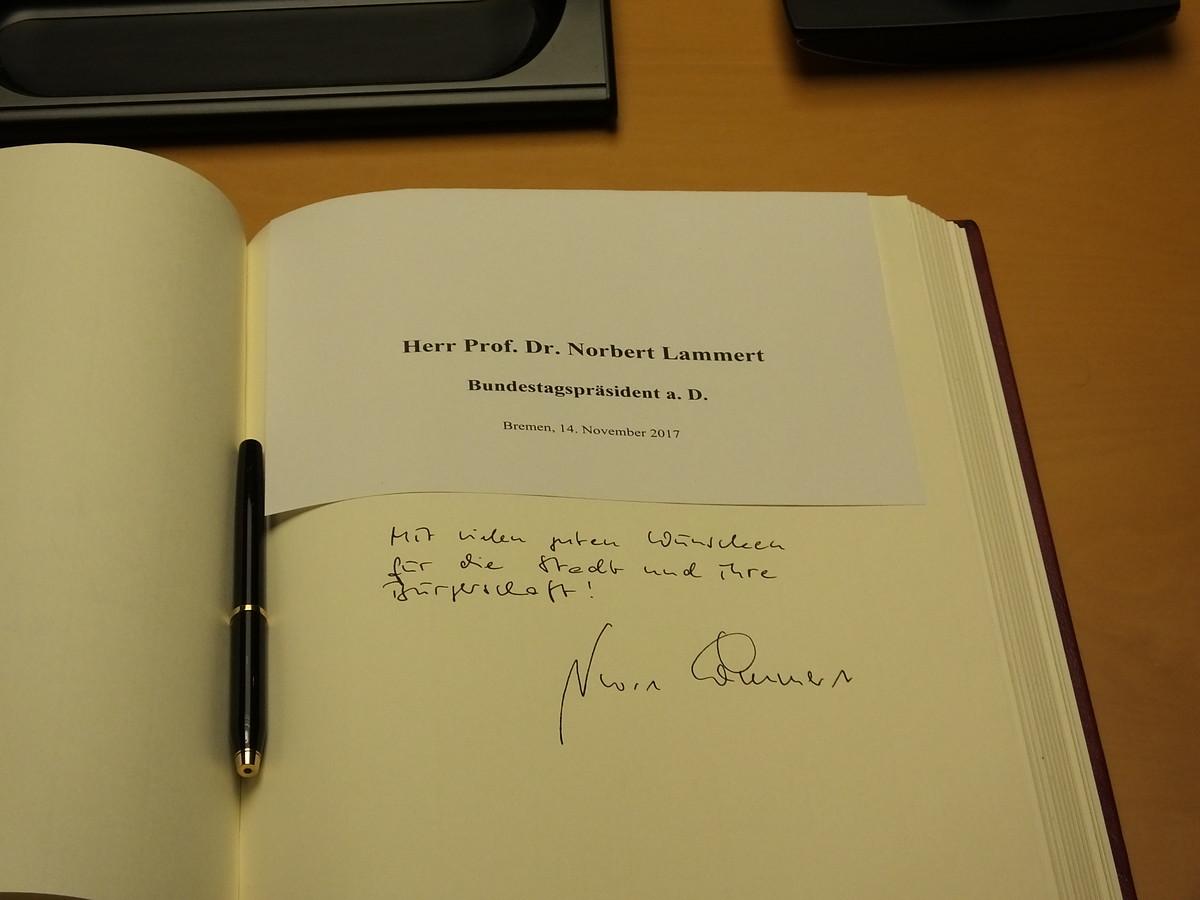 Herr Prof. Dr. Norbert Lammert
Bundestagspräsident a. D.
Bremen, 14. November 2017
Mit vielen guten Wünschen
für die Stadt und ihre
Bürgerschaft!
Norbert Lammert